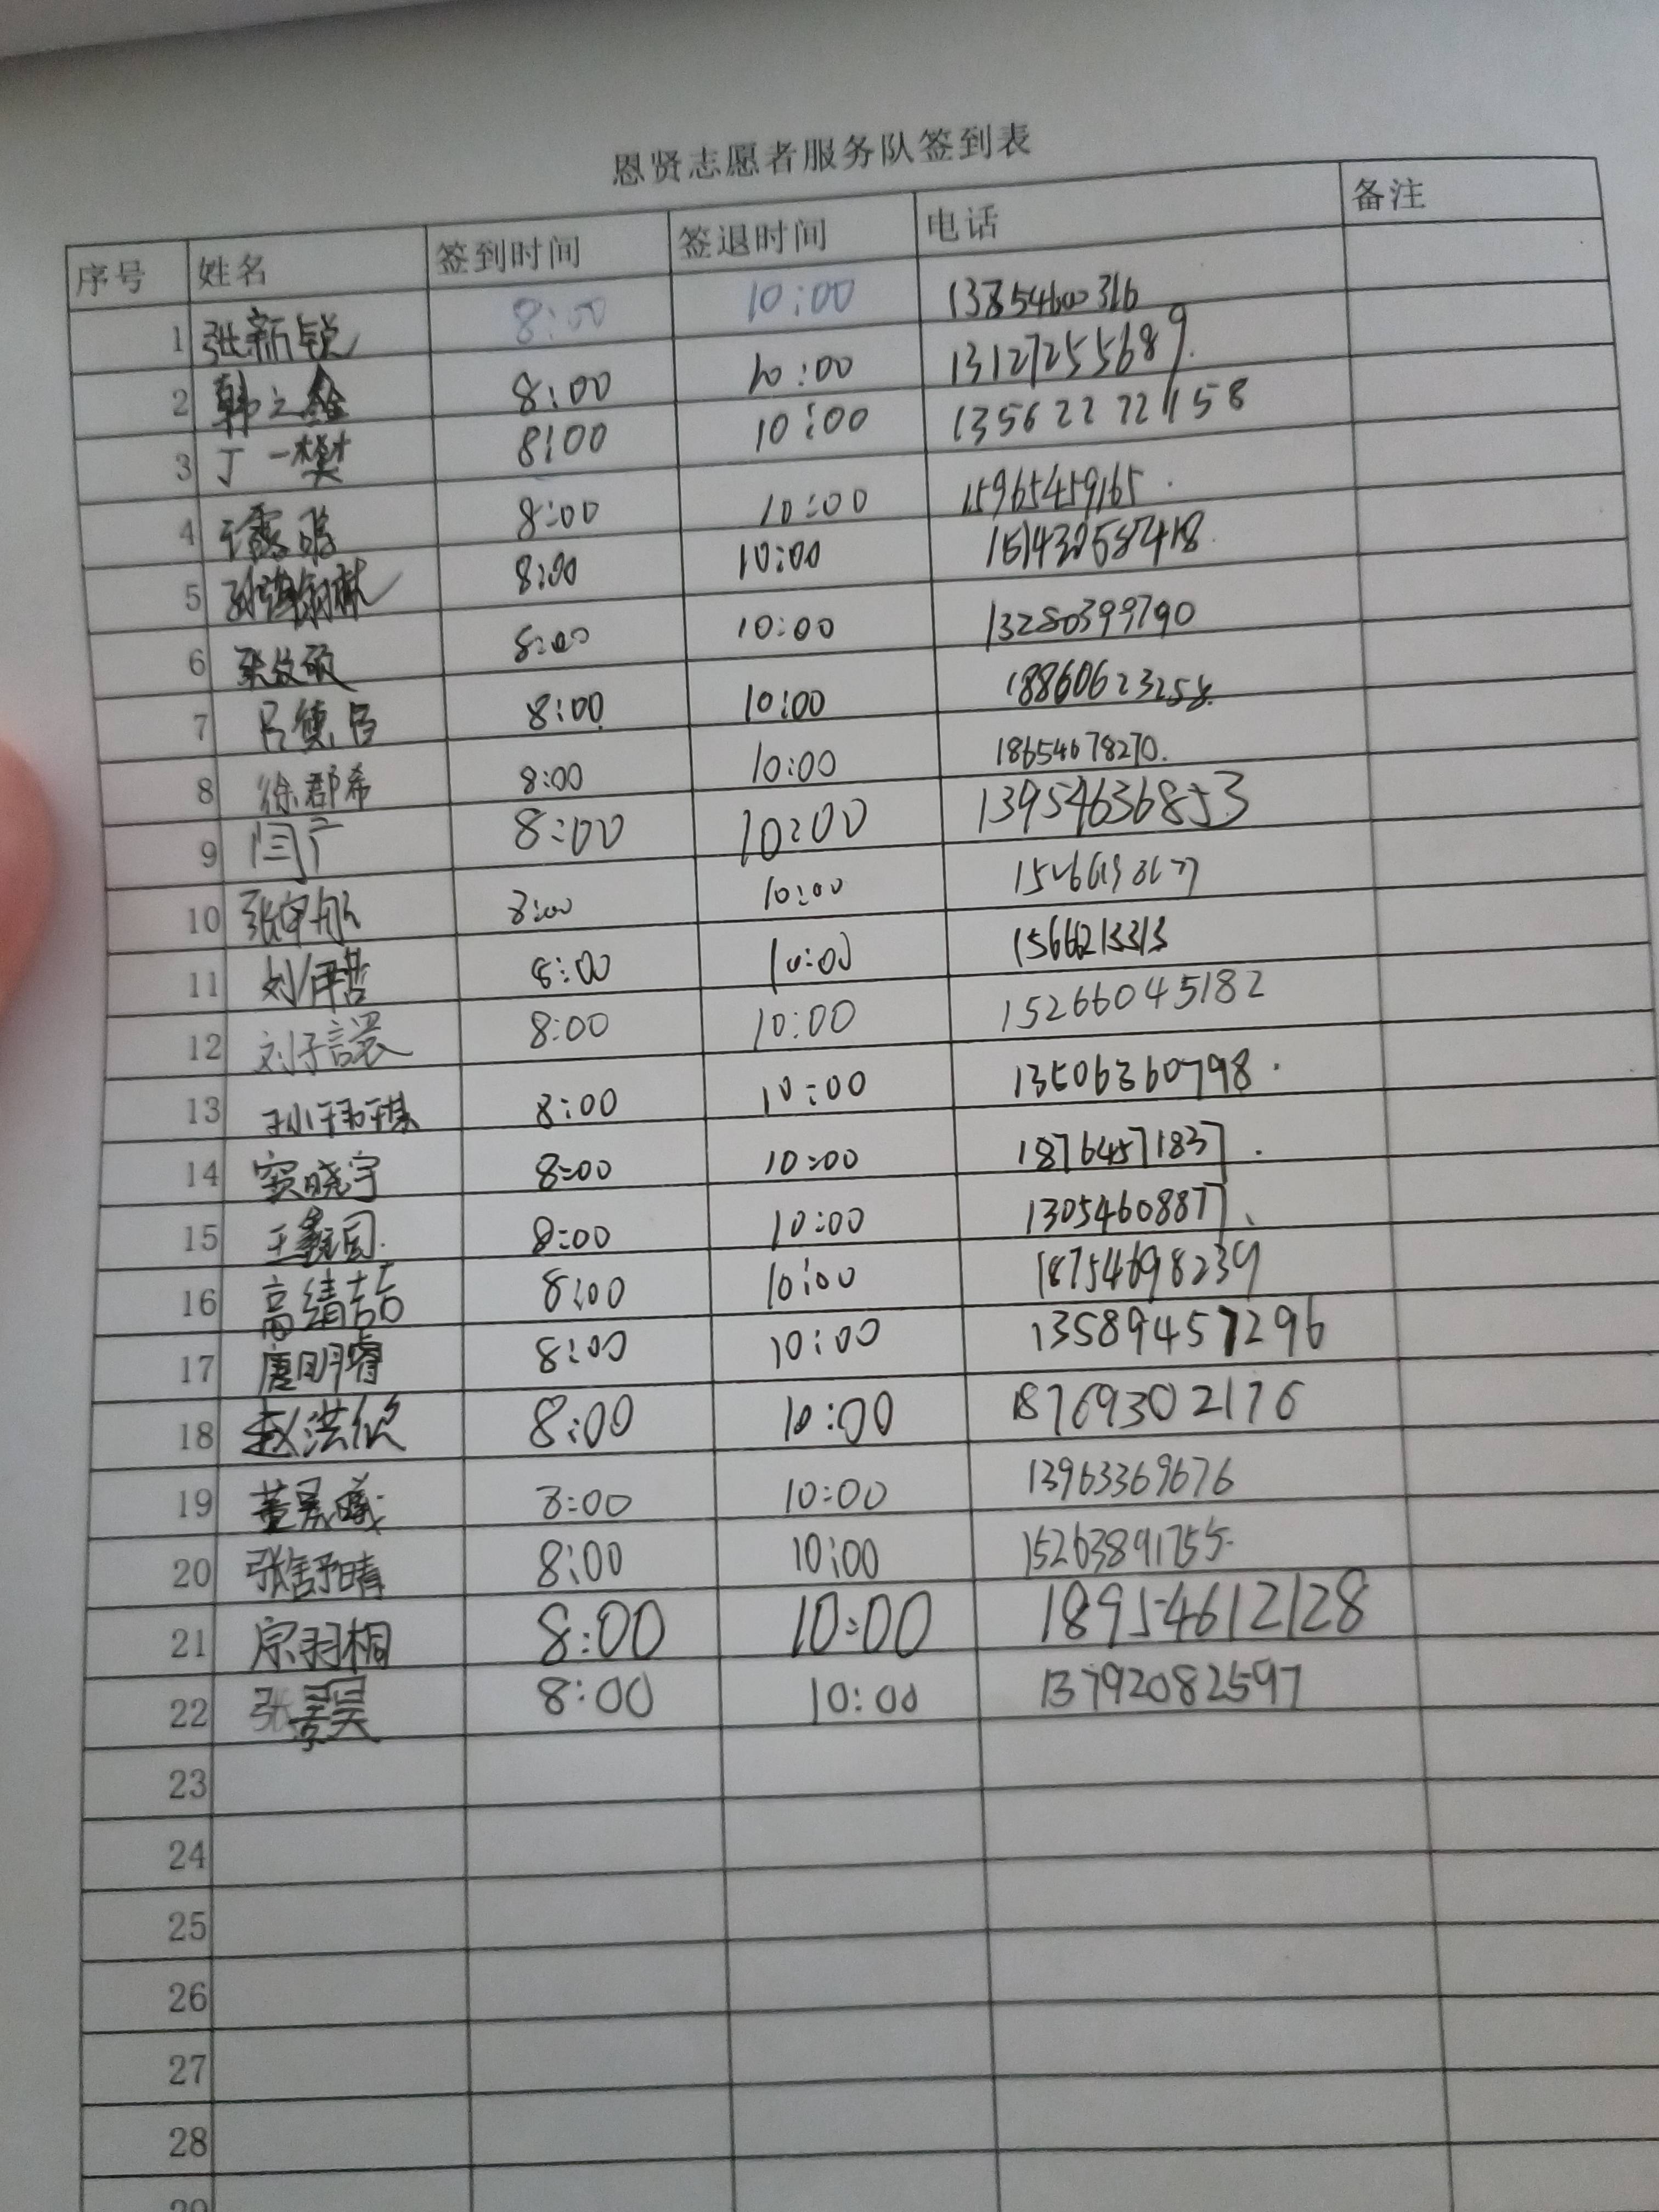 恩贤志愿者服务队签到表
序号 姓名 签到时间 签退时间 电话 备注
1 张新锐 8:00 10:00 13854600316
2 韩之 8:00 10:00 13127255689
3 丁一樊 8:00 10:00
4 8:00 10:00 15965459165
5 8:00 10:00
6 8:00 10:00 13280399790
7 吕德昌 8:00 10:00 18860623258
8 徐郡希 8:00 10:00 18654678270
9 闫广 8:00 10:00 13954636853
10 8:00 10:00
11 8:00 10:00
12 刘子譞 8:00 10:00 15266045182
13 孙玮琪 8:00 10:00 13506360798
14 窦晓宇 8:00 10:00 18764571837
15 8:00 10:00 13054608877
16 高绪喆 8:00 10:00 18754698239
17 唐明睿 8:00 10:00 13589457296
18 赵洪欣 8:00 10:00 18769302176
19 董 8:00 10:00 13963369676
20 张舒晴 8:00 10:00 15263891755
21 宗羽桐 8:00 10:00 18954612128
22 张景昊 8:00 10:00 13792082597
23
24
25
26
27
28
29